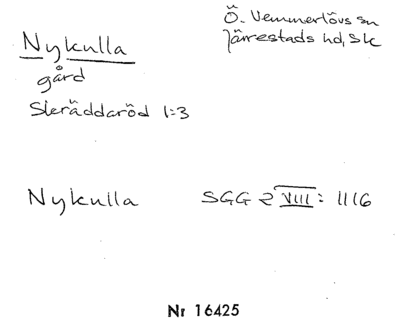 Nykulla
gård
Skräddaröd 1:3
Ö. Vemmerlövs sn
Järrestads hd, Sk
Nykulla SGG 2 VIII: 1116
Nr 16425